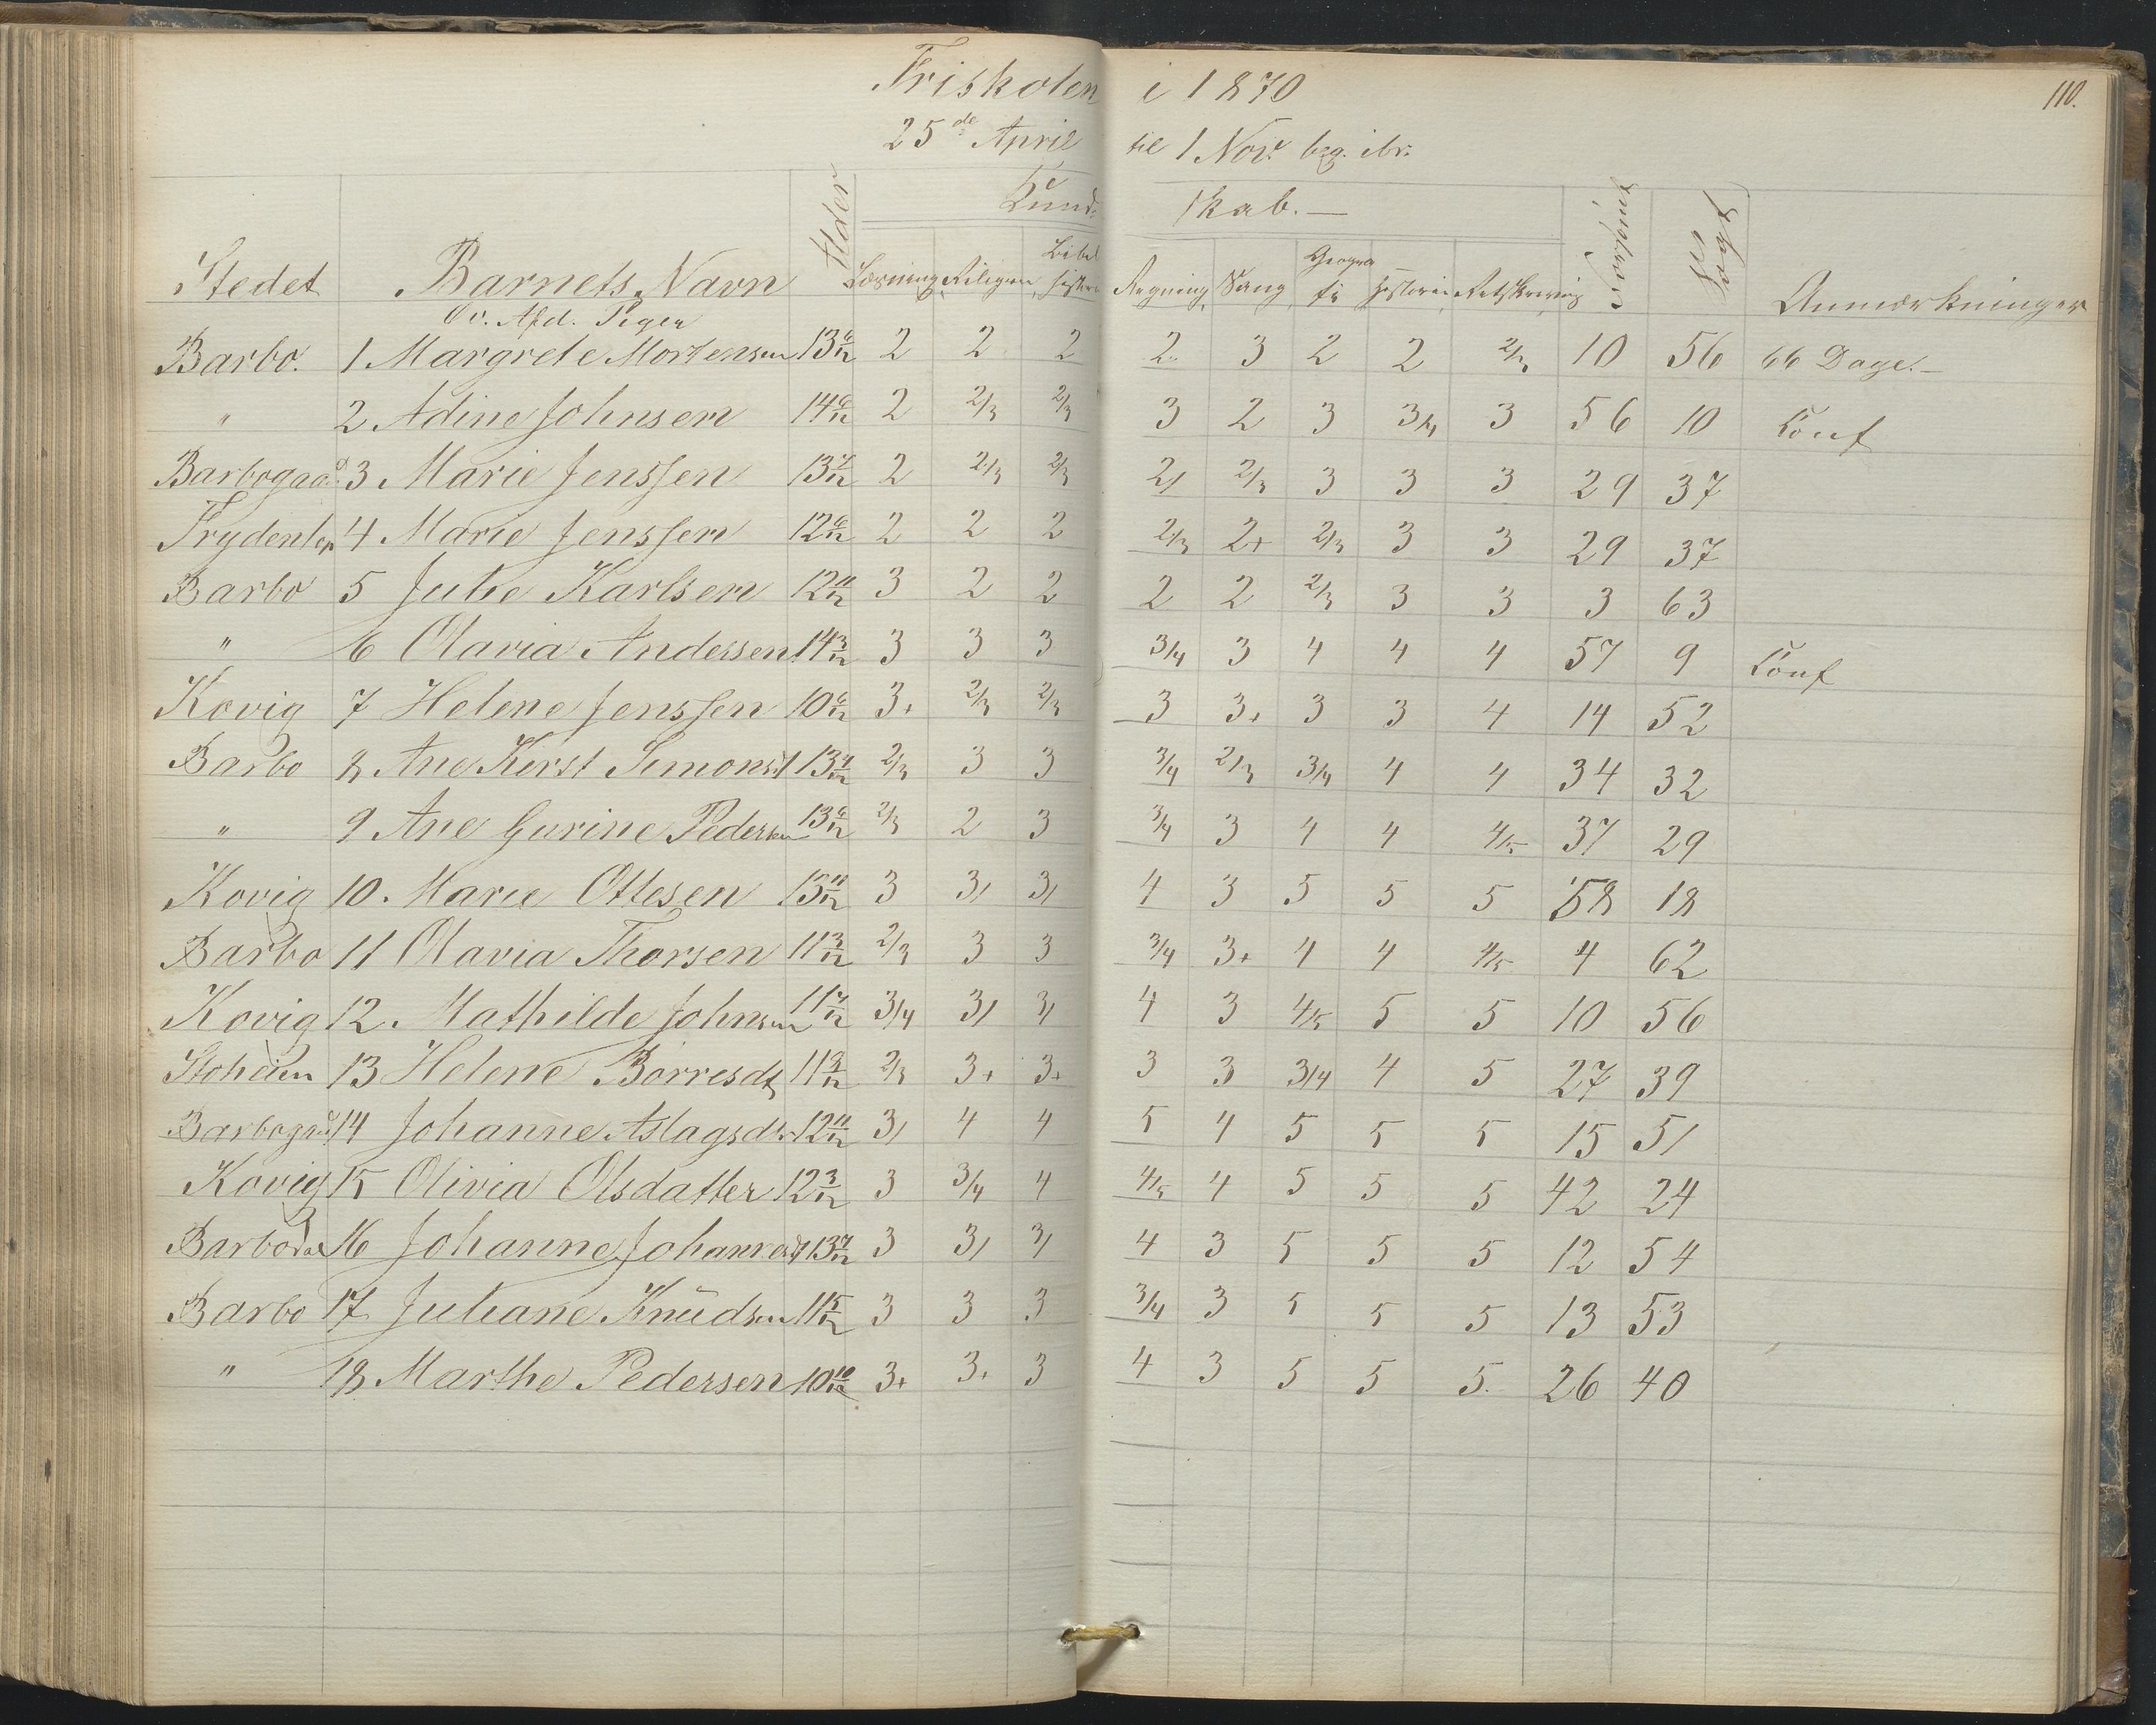 Friskolen i 1870
110.
25de April til 1 Nov. beg. ibr:
Kund- skab. —
Stedet Barnets Navn Alder Læsning Religion Bibel histori Regning Sang Geografi Historie Retskrivning Forsømt Søgt Anmærkninger
Øv. Afd. Piger
Barbo. 1 Margrete Mortensen 13 6/12 2 2 2 2 3 2 2 2/3 10 56 66 Dage. —
" 2 Adine Johnsen 14 6/12 2 2/3 2/3 3 2 3 3/4 3 56 10 Conf
Barbogaa 3 Marie Jenssen 13 7/12 2 2/3 2/3 2/ 2/3 3 3 3 29 37
4 Marie Jenssen 12 6/12 2 2 2 2/3 2+ 2/3 3 3 29 37
Barbo 5 Julie Karlsen 12 11/12 3 2 2 2 2 2/3 3 3 3 63
" 6 Olavia Andersen 14 3/12 3 3 3 3/4 3 4 4 4 57 9 Conf
Kovig 7 Helene Jenssen 10 6/12 3+ 2/3 2/3 3 3+ 3 3 4 14 52
Barbo 8 Ane Kirst Simonsd 13 4/12 2/3 3 3 3/4 2/3 3/4 4 4 34 32
" 9 Ane Gurine Pedersen 13 6/12 2/3 2 3 3/4 3 4 4 4/5 37 29
Kovig 10. Marie Ottesen 13 11/12 3 3/ 3/ 4 3 5 5 5 58 18
Barbo 11 Olavia Thorsen 11 3/12 2/3 3 3 3/4 3+ 4 4 4/5 4 62
Kovig 12. Mathilde Johnsen 11 7/12 3/4 3/ 3/ 4 3 4/5 5 5 10 56
Stoheien 13 Helene Börresdt 11 9/12 2/3 3+ 3+ 3 3 3/4 4 5 27 39
14 Johanne Aslagsdt 12 11/12 3/ 4 4 5 4 5 5 5 15 51
Kovig 15 Olivia Olsdatter 12 3/12 3 3/4 4 4/5 4 5 5 5 42 24
16 Johanne Johannesd 13 7/12 3 3/ 3/ 4 3 5 5 5 12 54
Barbo 17 Juliane Knudsen 11 5/12 3 3 3 3/4 3 5 5 5 13 53
" 18 Marthe Pedersen 10 10/12 3+ 3+ 3 4 3 5 5 5. 26 40